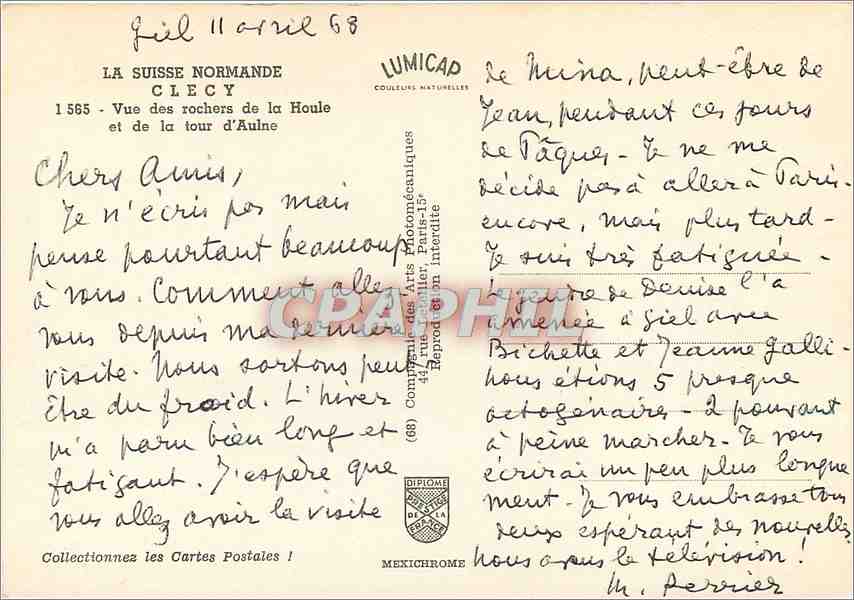 Giel 11 avril 68
LA SUISSE NORMANDE
CLECY
1 565 - Vue des rochers de la Houle
et de la tour d'Aulne
Chers Amis,
Je n'écris pas mais
pense pourtant beaucoup
à vous. Comment allez-
vous depuis ma dernière
visite. Nous sortons peut-
être du froid. L'hiver
m'a paru bien long et
fatigant. J'espère que
vous allez avoir la visite
Collectionnez les Cartes Postales !
LUMICAP
COULEURS NATURELLES
(68) Compagnie des Arts Photomécaniques
44, rue Letellier, Paris-15e
Reproduction interdite
CPAPHIL
DIPLOME
PRESTIGE
DE LA
FRANCE
MEXICHROME
de Mina, peut-être de
Jean, pendant ces jours
de Pâques - Je ne me
décide pas à aller à Paris-
encore, mais plus tard -
Je suis très fatiguée -
Le gendre de Denise l'a
amenée à Giel avec
Bichette et Jeanne Galli-
nous étions 5 presque
octogénaires - 2 pouvant
à peine marcher - Je vous
écrirai un peu plus longue
ment - Je vous embrasse tous
deux espérant des nouvelles
nous avons la télévision !
M. Perrier